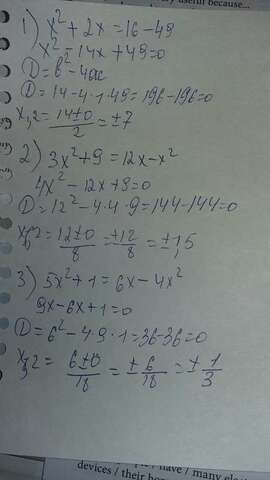 1) x² + 2x = 16 - 49
x² - 14x + 49 = 0
D = b² - 4ac
D = 14 - 4 · 1 · 49 = 196 - 196 = 0
x1,2 = (14 ± 0)/2 = ± 7
2) 3x² + 9 = 12x - x²
4x² - 12x + 9 = 0
D = 12² - 4 · 4 · 9 = 144 - 144 = 0
x1,2 = (12 ± 0)/8 = ± 12/8 = ± 1,5
3) 5x² + 1 = 6x - 4x²
9x - 6x + 1 = 0
D = 6² - 4 · 9 · 1 = 36 - 36 = 0
x1,2 = (6 ± 0)/18 = ± 6/18 = ± 1/3
/ have / many
devices / their